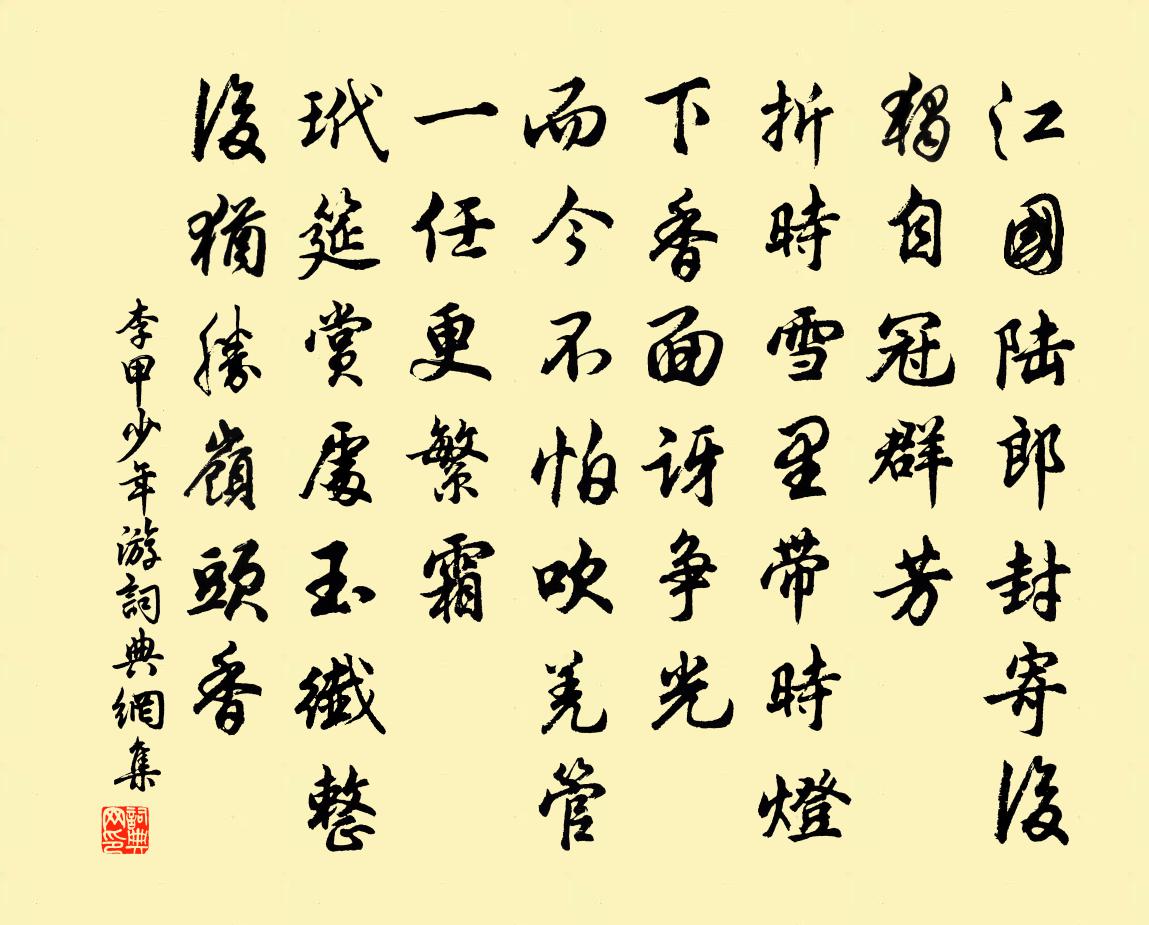 江國陆郎封寄後
獨自冠群芳
折時雪里带時燈
下香面讶争光
而今不怕吹羌管
一任更繁霜
玳筵赏處玉纖整
後猶勝嶺頭香
李甲少年游詞典網集
詞典网印